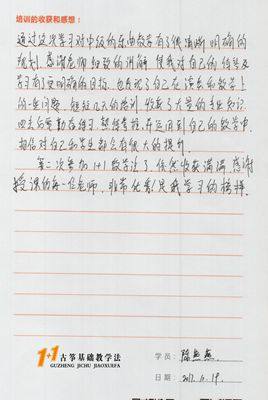 培训的收获和感想:
通过这次学习对中级的乐曲教学有了很清晰明确的
规划。感谢老师细致的讲解,使我对自己的
学习有了更明确的目标,也发现了自己在演奏和教学上
的一些问题。短短几天的培训,收获了大量的专业知识,
回去后要勤奋练习,熟练掌握,并运用到自己的教学中,
相信对自己和学生都会有很大的提升。
第二次参加1+1教学法了,依然收获满满,感谢
授课的每一位老师,非常优秀!是我学习的榜样。
1+1 古筝基础教学法
GUZHENG JICHU JIAOXUEFA
学员:陈
日期:2017.6.19.